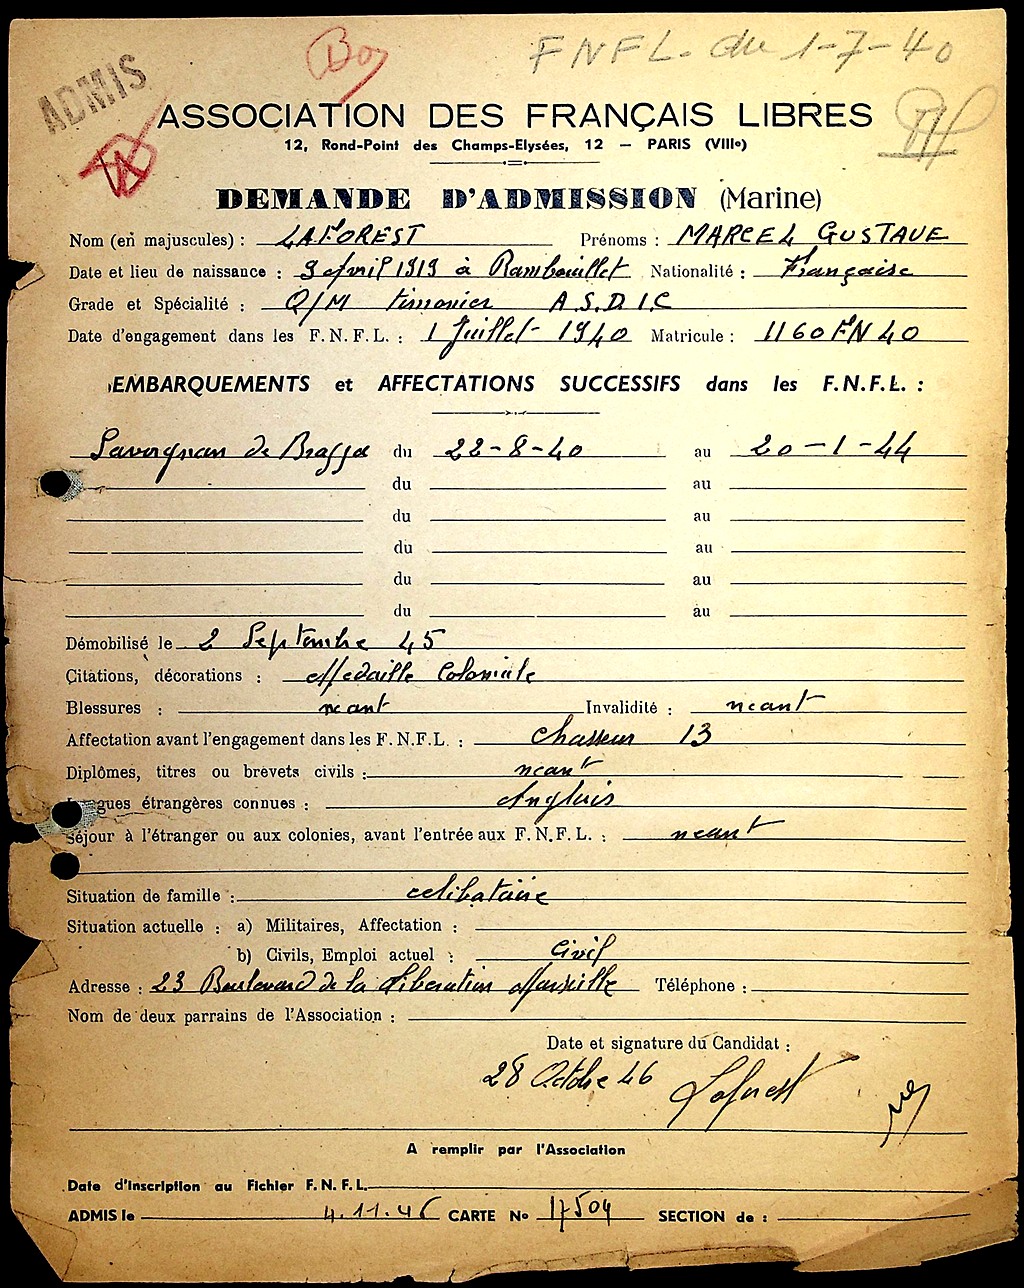 FNFL- du 1-7-40
ADMIS
ASSOCIATION DES FRANÇAIS LIBRES
12, Rond-Point des Champs-Elysées, 12 — PARIS (VIIIe)
DEMANDE D'ADMISSION (Marine)
Nom (en majuscules) : LAFOREST Prénoms : MARCEL GUSTAVE
Date et lieu de naissance : 9 avril 1919 à Rambouillet Nationalité : Française
Grade et Spécialité : Q/M timonier A.S.D.I.C
Date d'engagement dans les F.N.F.L. : 1 Juillet 1940 Matricule : 1160 FN 40
EMBARQUEMENTS et AFFECTATIONS SUCCESSIFS dans les F.N.F.L. :
Savorgnan de Brazza du 22-8-40 au 20-1-44
du au
du au
du au
du au
du au
Démobilisé le 2 Septembre 45
Citations, décorations : Medaille Coloniale
Blessures : neant Invalidité : neant
Affectation avant l'engagement dans les F.N.F.L. : Chasseur 13
Diplômes, titres ou brevets civils : neant
gues étrangères connues : Anglais
Séjour à l'étranger ou aux colonies, avant l'entrée aux F.N.F.L. : neant
Situation de famille : celibataire
Situation actuelle : a) Militaires, Affectation :
b) Civils, Emploi actuel : Civil
Adresse : 23 Boulevard de la Liberation Marseille Téléphone :
Nom de deux parrains de l'Association :
Date et signature du Candidat :
28 Octobre 46 Laforest
A remplir par l'Association
Date d'inscription au Fichier F.N.F.L.
ADMIS le 4.11.46 CARTE No 17504 SECTION de :